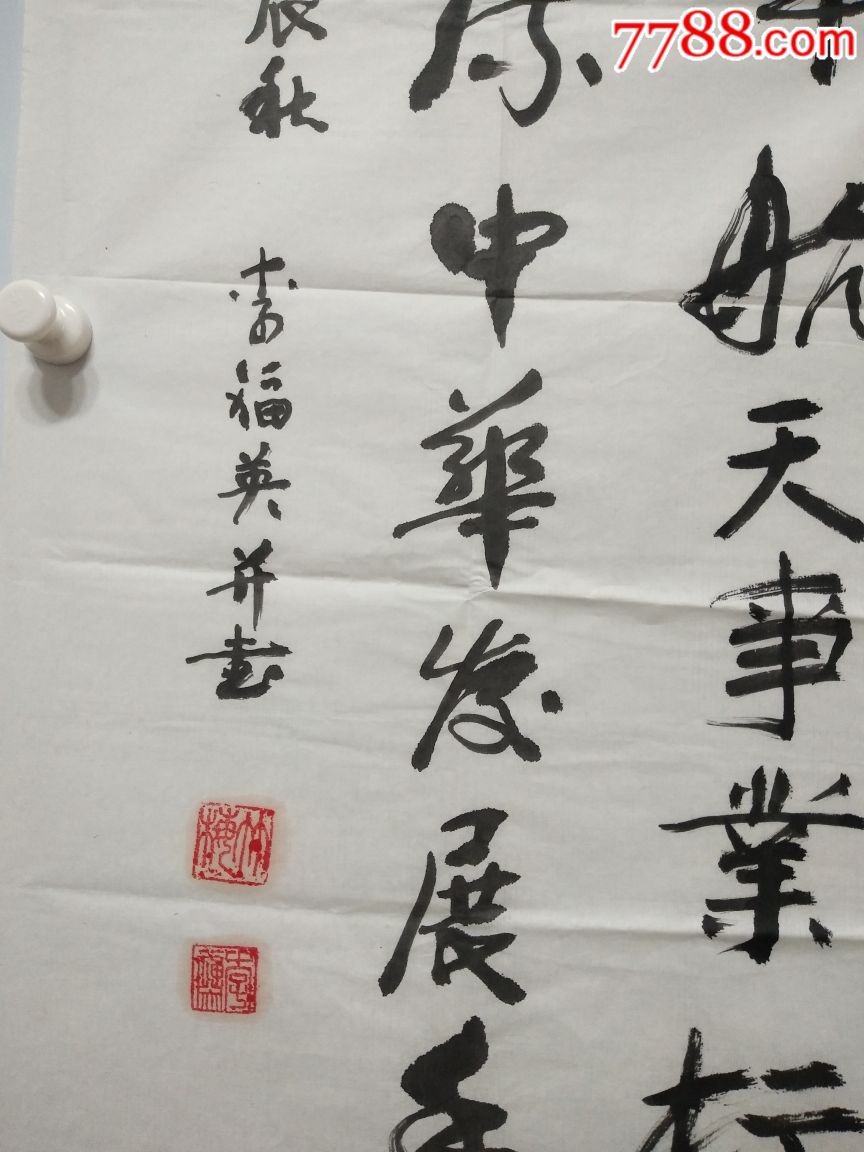 7788.com
航天事業标
中華发展
辰秋 李福英并书